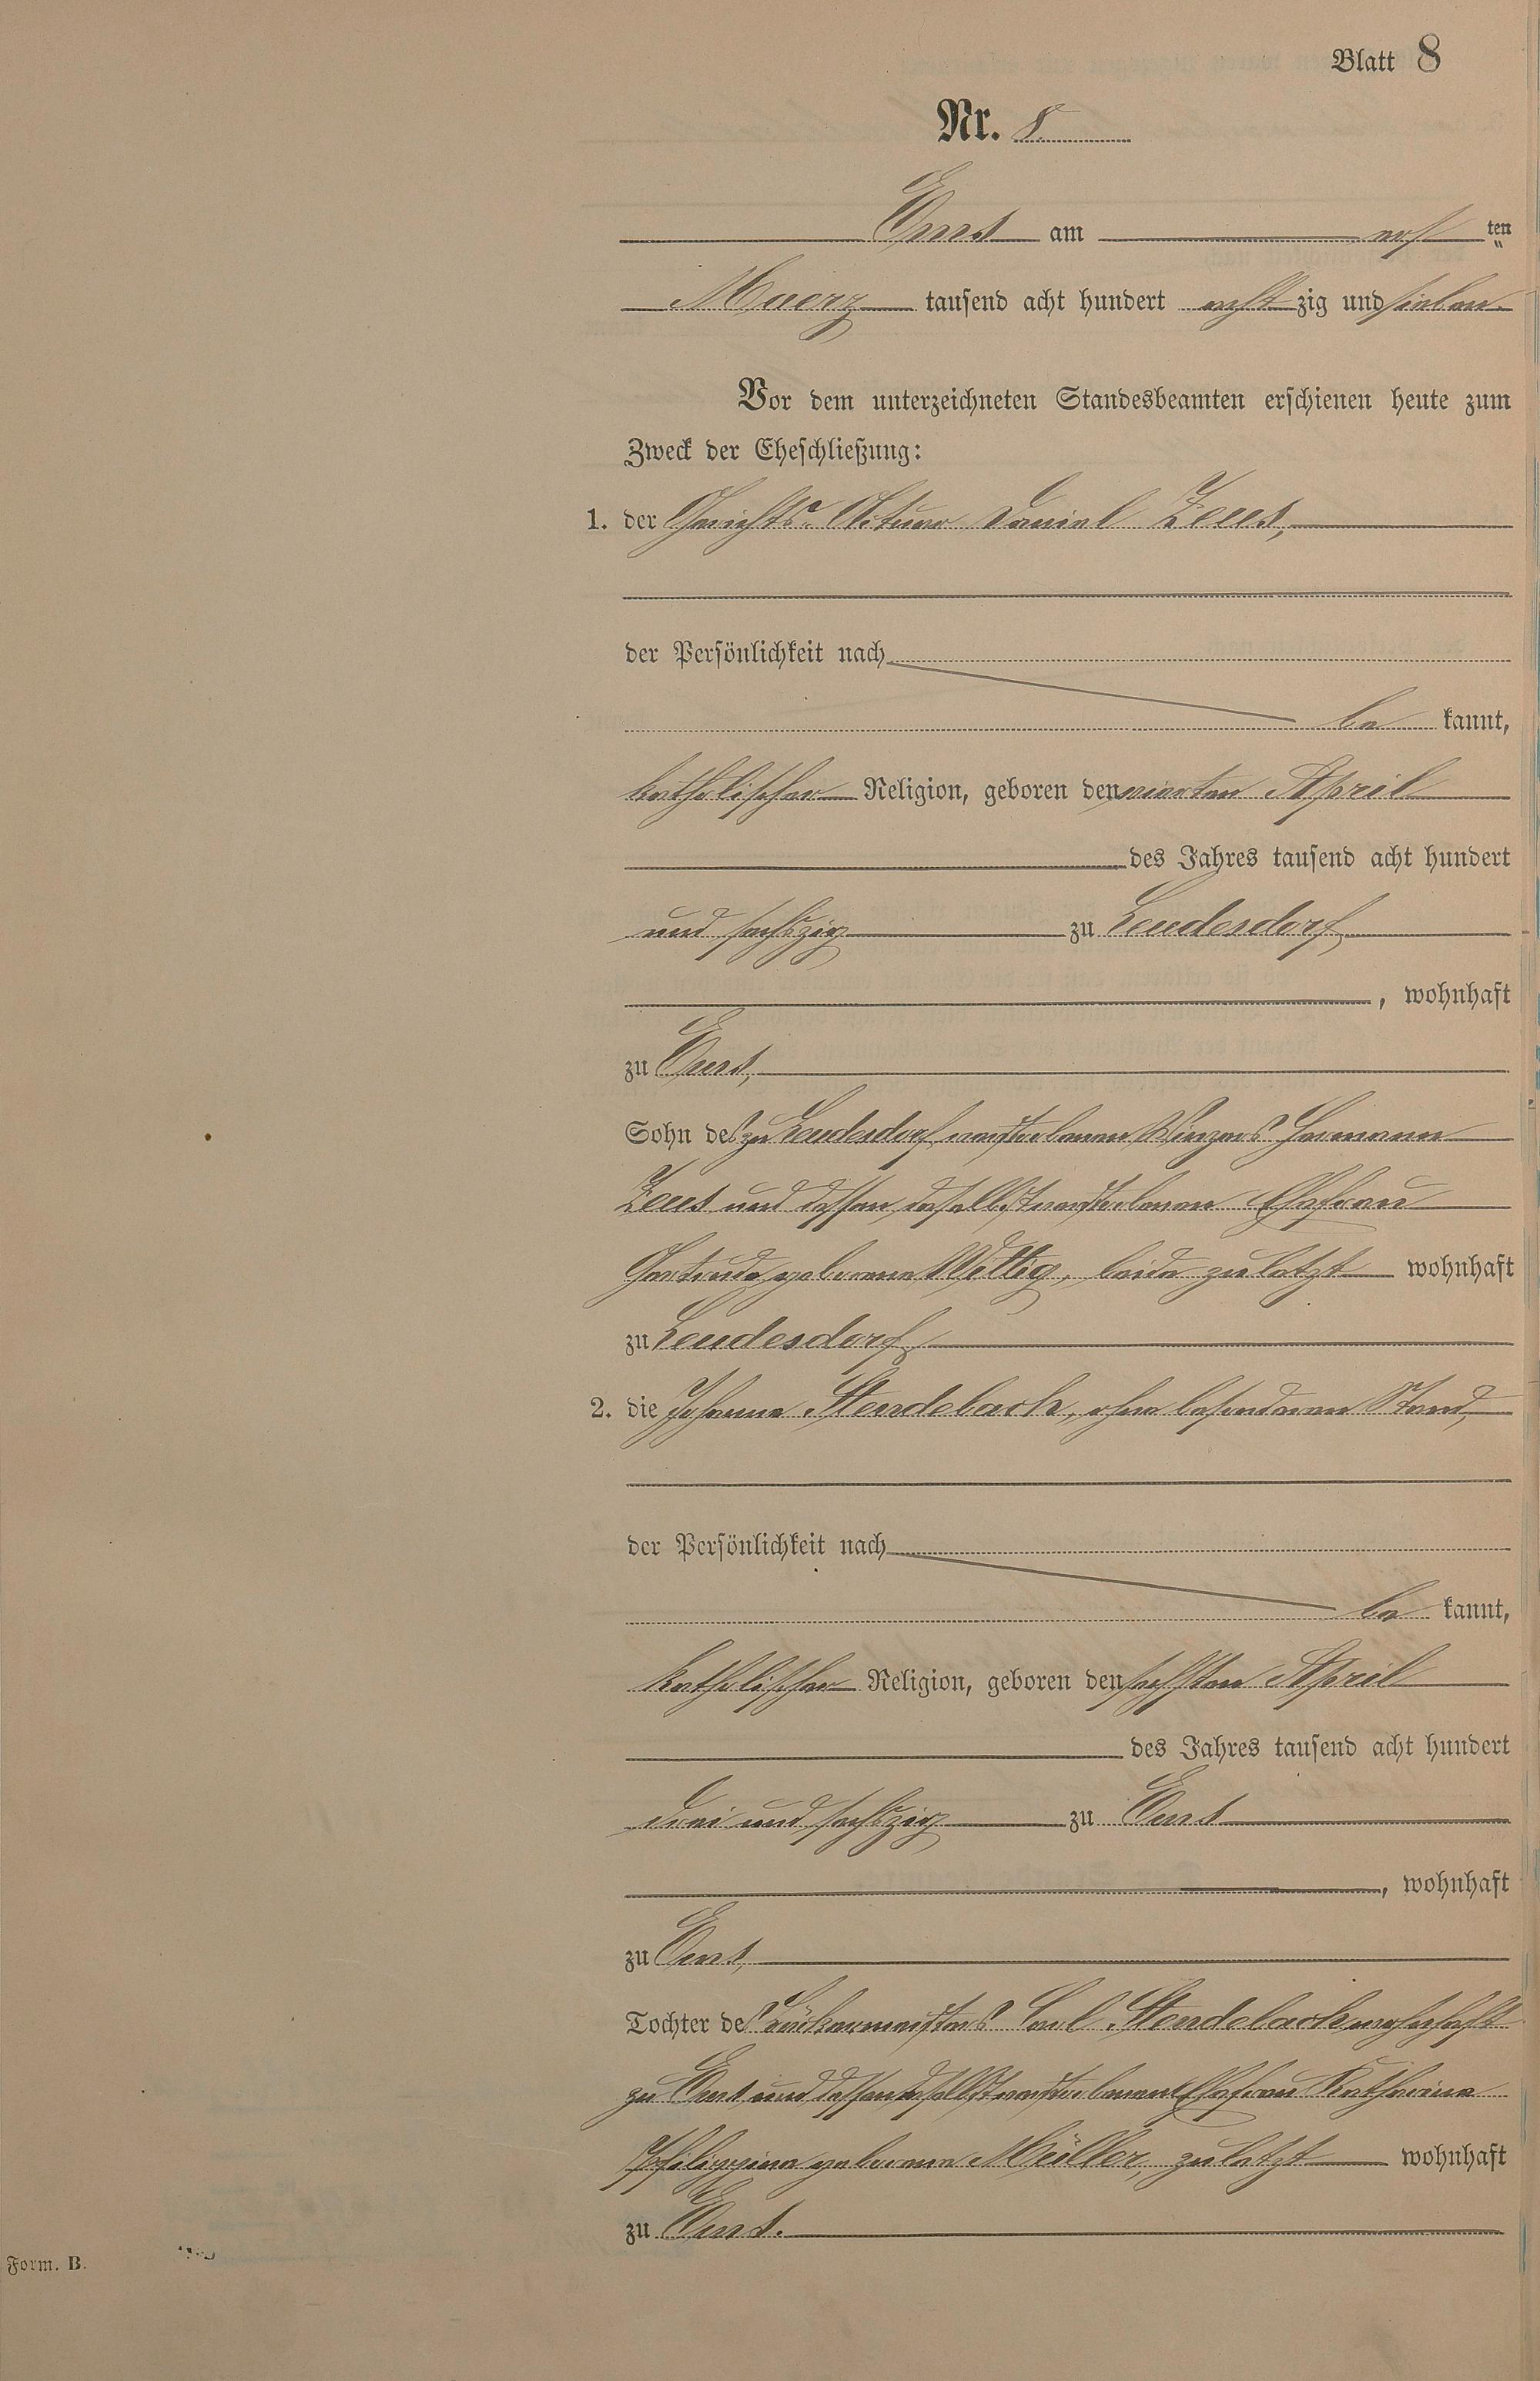 Blatt 8
Nr. 8.
Ems am acht ten
Maerz tausend acht hundert acht zig und sieben.
Vor dem unterzeichneten Standesbeamten erschienen heute zum
Zweck der Eheschließung:
1. der Gerichts-Aktuar Daniel Zeus,
der Persönlichkeit nach
be kannt,
katholischer Religion, geboren den vierten April
des Jahres tausend acht hundert
und sechszig zu Leudesdorf,
, wohnhaft
zu Ems,
Sohn des zu Leudesdorf verstorbenen Winzers Hermann
Zeus und dessen daselbst verstorbenen Ehefrau
Gertrude geborene Wittig, beide zuletzt wohnhaft
zu Leudesdorf,
2. die Johanna Stendebach, ohne besonderen Stand,
der Persönlichkeit nach
be kannt,
katholischer Religion, geboren den sechsten April
des Jahres tausend acht hundert
drei und sechszig zu Ems
, wohnhaft
zu Ems,
Tochter des Bäckermeisters Carl Stendebach wohnhaft
zu Ems und dessen daselbst verstorbenen Ehefrau Katharina
Philippina geborene Müller, zuletzt wohnhaft
zu Ems.
Form. B.